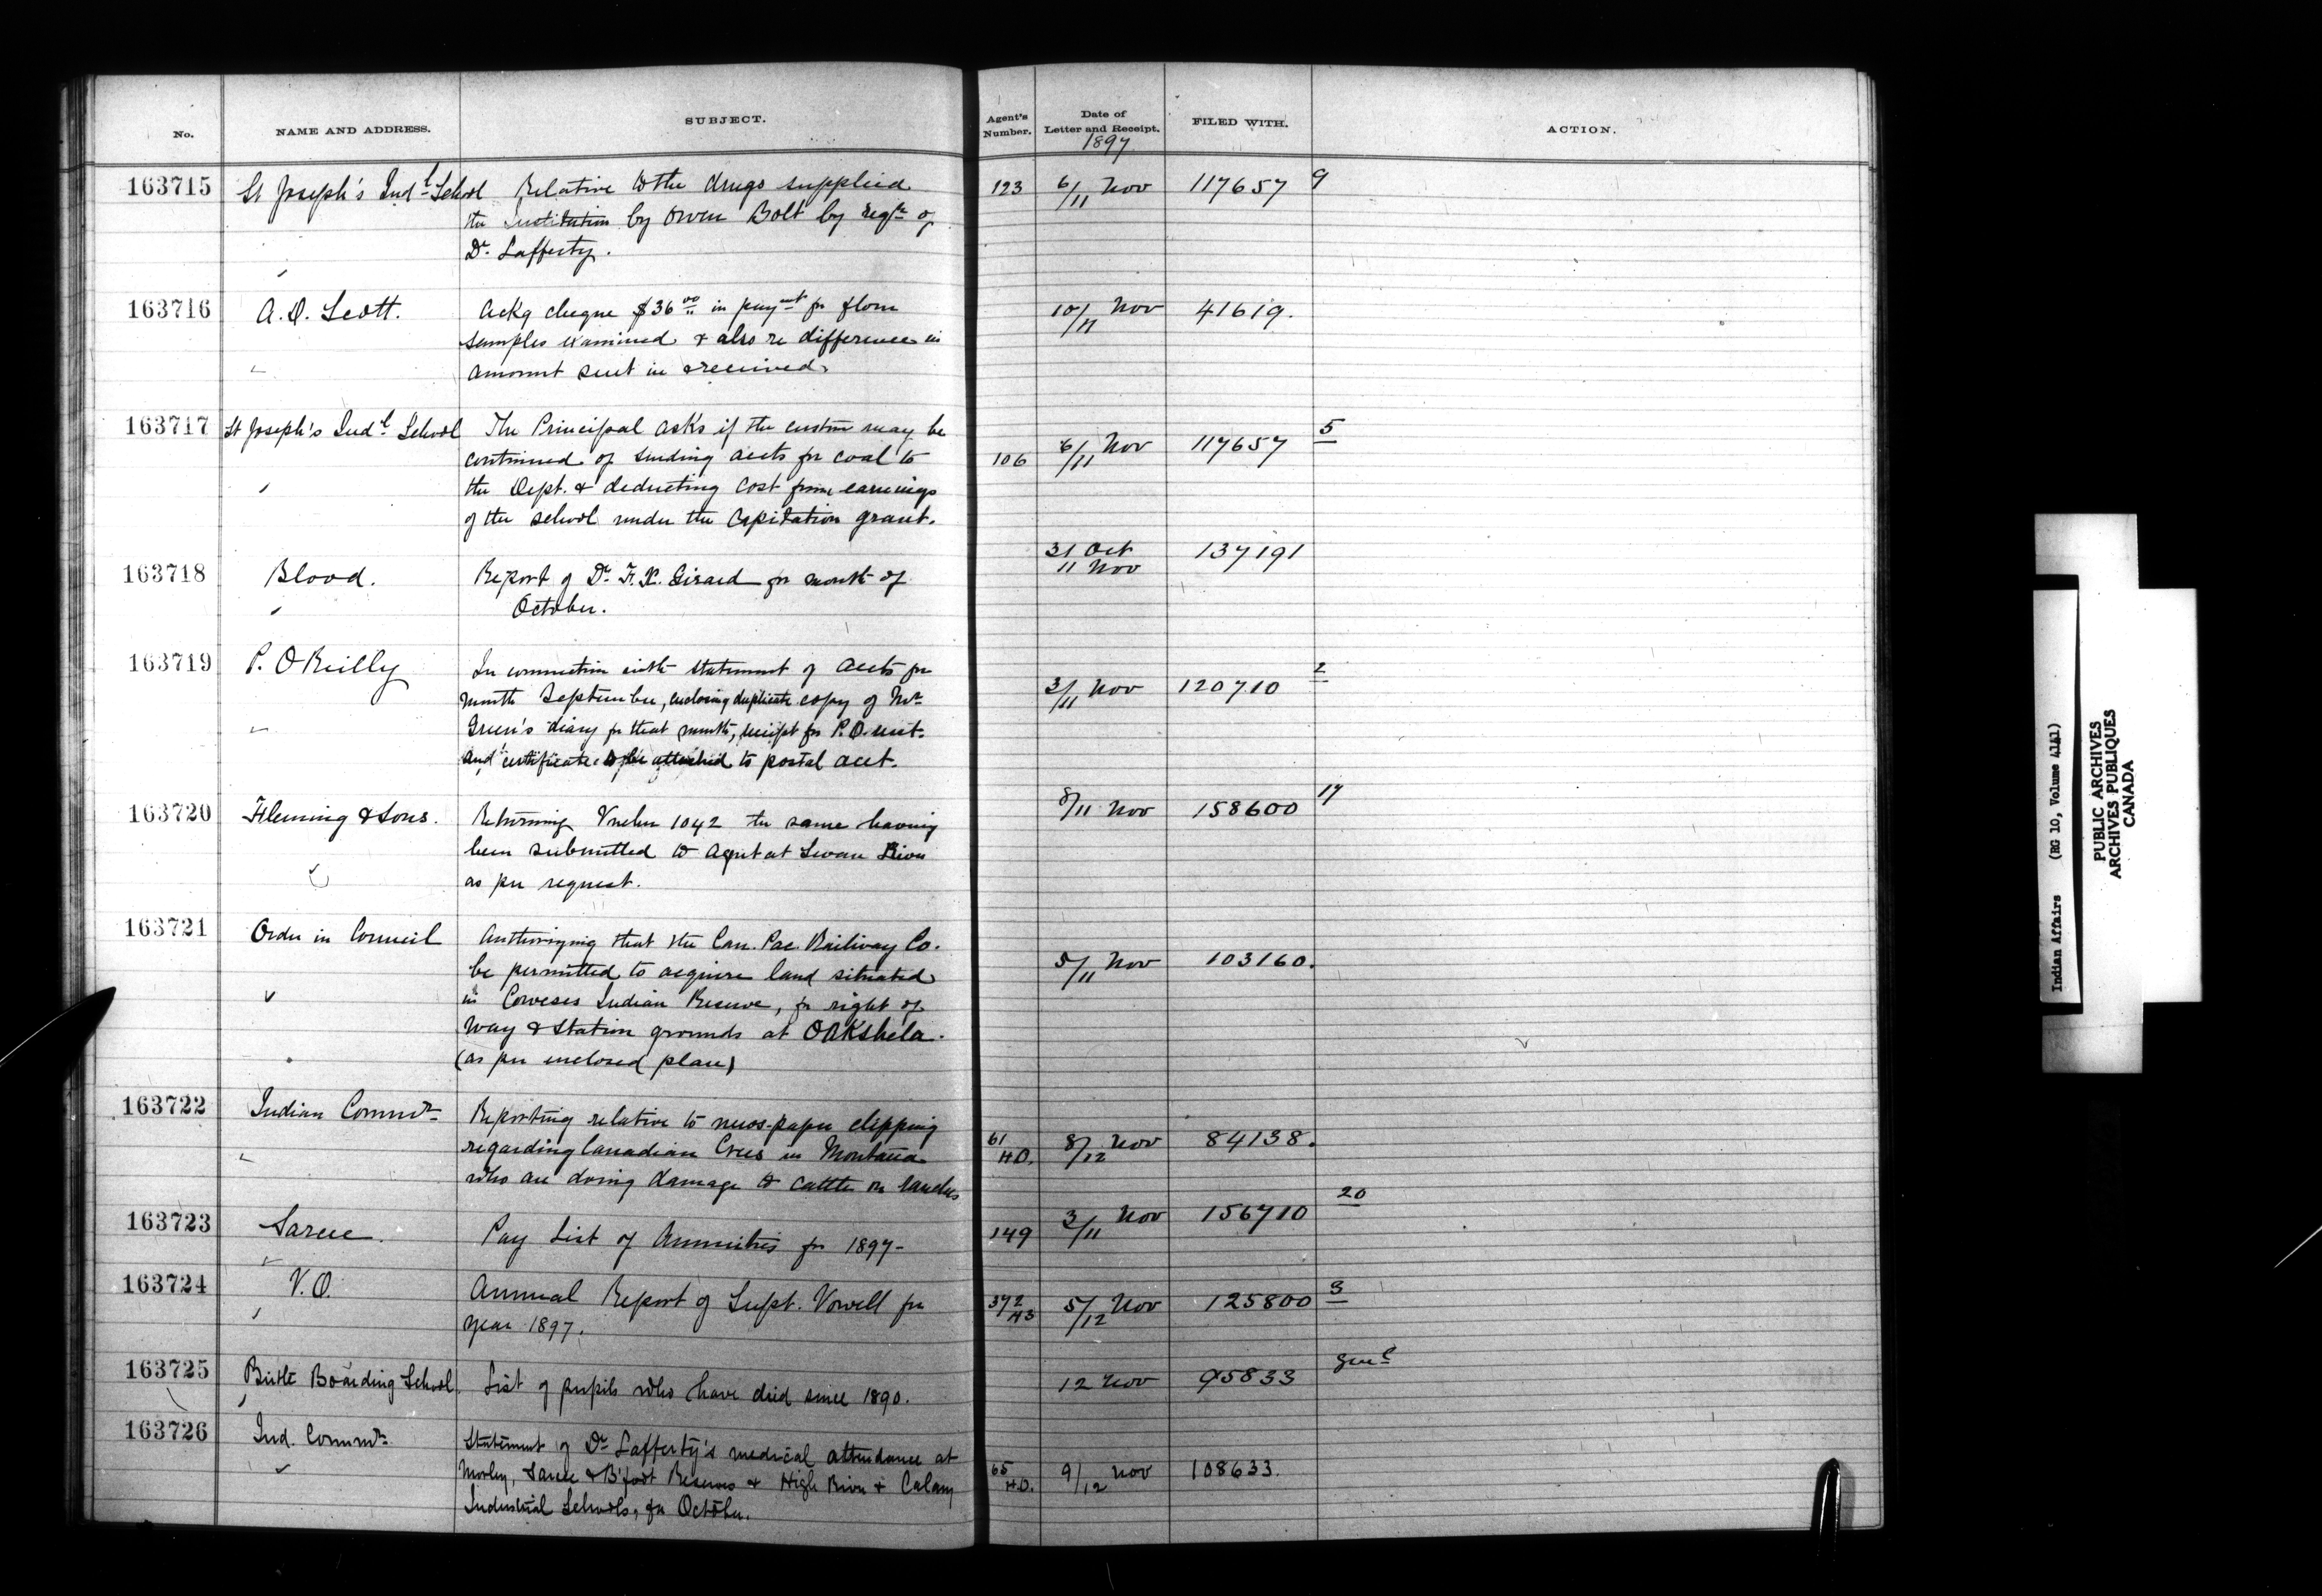 No. NAME AND ADDRESS. SUBJECT. Agent's Number. Date of Letter and Receipt. FILED WITH. ACTION.
1897
163715 St Joseph's Indl School Relative to the drugs supplied 123 6/11 Nov 117657 9
the Institution by Owen Bolt by reqst of
Dr. Lafferty.
163716 A.D. Scott. Ackg cheque $36 00 in paymt for flour 10/11 Nov 41619.
samples examined & also re difference in
amount sent in & received.
163717 St Joseph's Indl School The Principal asks if the custom may be 5
continued of sending accts for coal to 106 6/11 Nov 117657
the Dept. & deducting cost from earnings
of the school under the Capitation grant.
163718 Blood. Report of Dr. F. X. Girard for month of 31 Oct 11 Nov 137191
October.
163719 P. O'Reilly In connection with statement of accts for 2
month September, enclosing duplicate copy of Mr 3/11 Nov 120710
Green's diary for that month, receipt for P.O. rent.
and certificate to be attached to postal acct.
163720 Fleming & Sons. Returning Vucher 1042 the same having 8/11 Nov 158600 17
been submitted to Agent at Swan River
as per request.
163721 Order in Council Authorizing that the Can. Pac. Railway Co.
be permitted to acquire land situated 5/11 Nov 103160.
in Coweses Indian Reserve, for right of
way & station grounds at Oakshela.
(as per enclosed plan)
163722 Indian Commr Reporting relative to news-paper clipping
regarding Canadian Crees in Montana 61 H.O. 8/12 Nov 84138.
who are doing damage to cattle on ranches
163723 Sarcee. Pay List of Annuities for 1897- 149 3/11 Nov 156710 20
163724 V.O. Annual Report of Supt. Vowell for 372 H3 5/12 Nov 125800 3
year 1897.
163725 Birtle Boarding School. List of pupils who have died since 1890. 12 Nov 95833 Genl
163726 Ind. Commr Statement of Dr Lafferty's medical attendance at
Morley, Sarcee & B'foot Reserves & High River & Calgary 65 H.O. 9/12 Nov 108633.
Industrial Schools, for October.
Indian Affairs (RG 10, Volume 4141)
PUBLIC ARCHIVES
ARCHIVES PUBLIQUES
CANADA